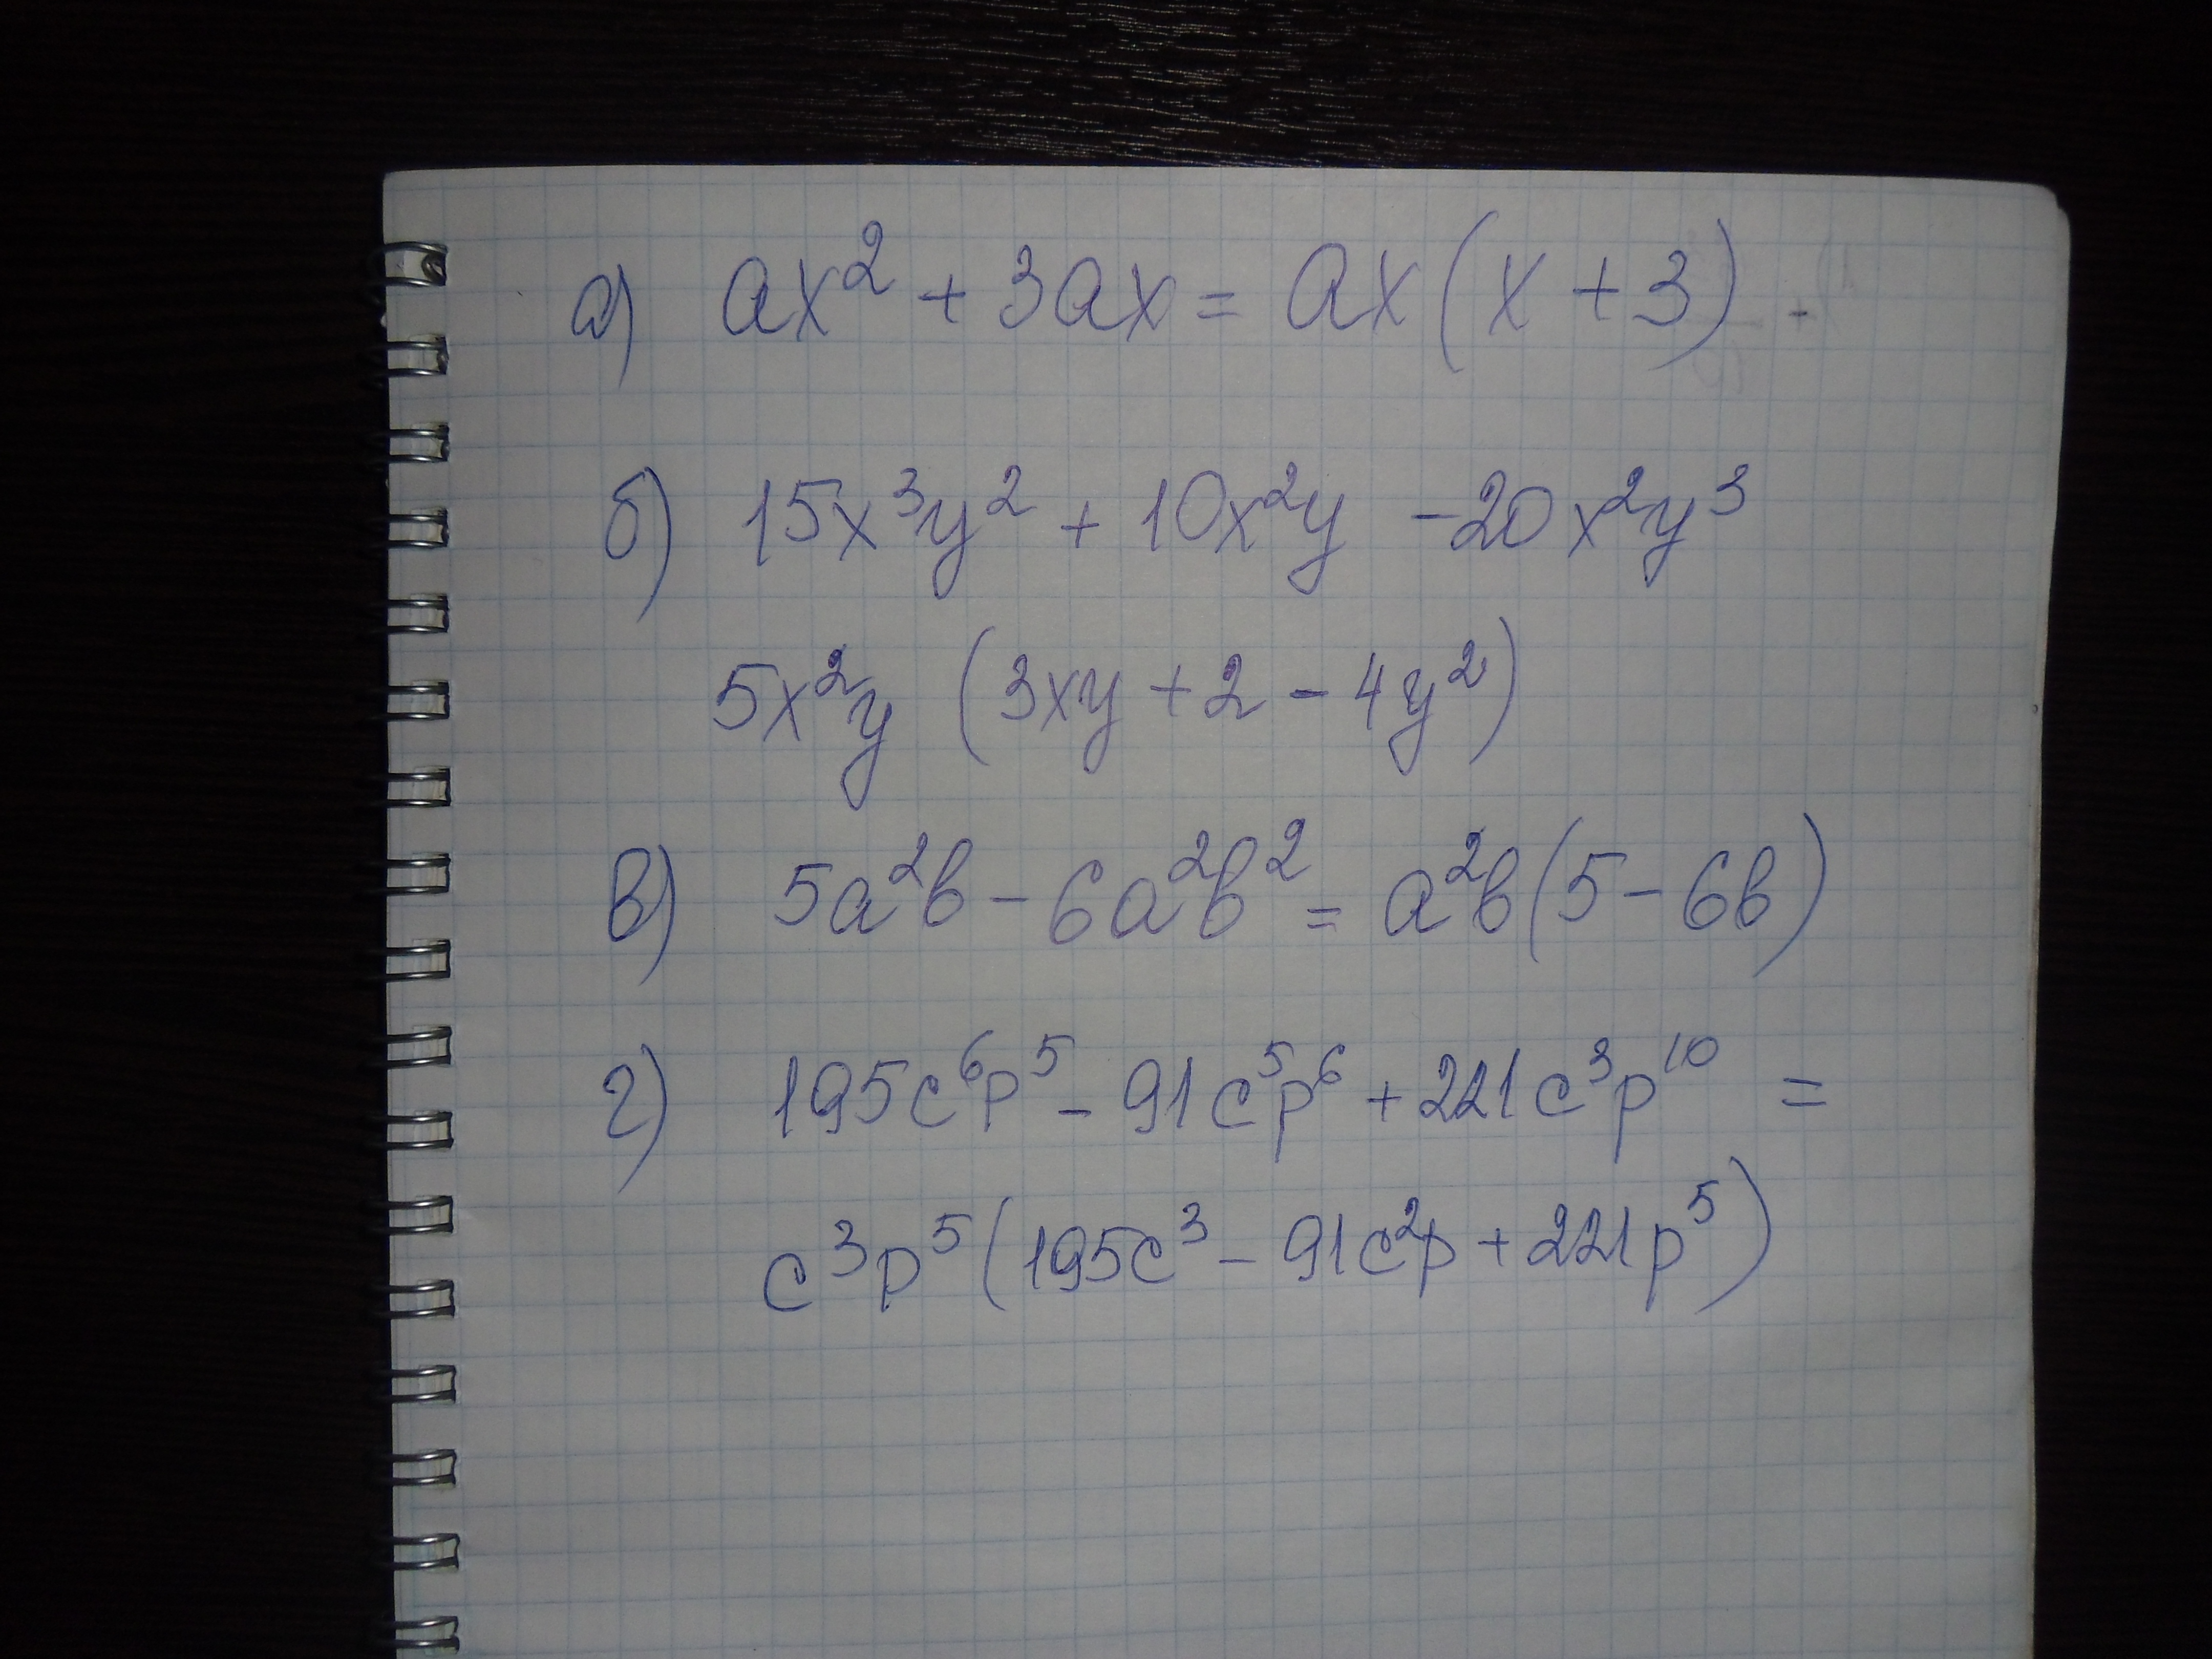 а) ax² + 3ax = ax(x + 3)
б) 15x³y² + 10x²y - 20x²y³
5x²y (3xy + 2 - 4y²)
в) 5a²b - 6a²b² = a²b(5 - 6b)
г) 195c⁶p⁵ - 91c⁵p⁶ + 221c³p¹⁰ =
c³p⁵(195c³ - 91c²p + 221p⁵)